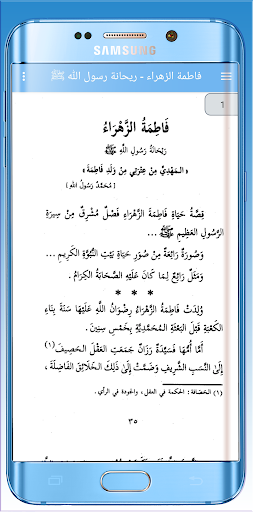 SAMSUNG
فاطمة الزهراء - ريحانة رسول الله ﷺ
1
فَاطِمَةُ الزَّهْرَاءُ
رَيْحَانَةُ رَسُولِ اللَّهِ ﷺ
« الـمَهْدِيُّ مِنْ عِتْرَتِي مِنْ وَلَدِ فَاطِمَةَ »
[مُحَمَّدٌ رَسُولُ اللهِ]
قِصَّةُ حَيَاةِ فَاطِمَةَ الزَّهْرَاءِ فَصْلٌ مُشْرِقٌ مِنْ سِيرَةِ
الرَّسُولِ العَظِيمِ ﷺ ...
وَصُورَةٌ رَائِعَةٌ مِنْ صُوَرِ حَيَاةِ بَيْتِ النُّبُوَّةِ الكَرِيمِ ...
وَمَثَلٌ رَائِعٌ لِمَا كَانَ عَلَيْهِ الصَّحَابَةُ الكِرَامُ .
* * *
وُلِدَتْ فَاطِمَةُ الزَّهْرَاءُ رِضْوَانُ اللَّهِ عَلَيْهَا سَنَةَ بِنَاءِ
الكَعْبَةِ قَبْلَ البَعْثَةِ المُحَمَّدِيَّةِ بِخَمْسِ سِنِينَ .
أَمَّا أُمُّهَا فَسَيِّدَةُ زَمَانٍ جَمَعَتِ العَقْلَ الحَصِيفَ (١)
إِلَى النَّسَبِ الشَّرِيفِ وَضَمَّتْ إِلَى ذَلِكَ الخَلَائِقَ الفَاضِلَةَ ،
(١) الحَصَافَة: الحكمة في العقل، والجودة في الرأي .
٣٥